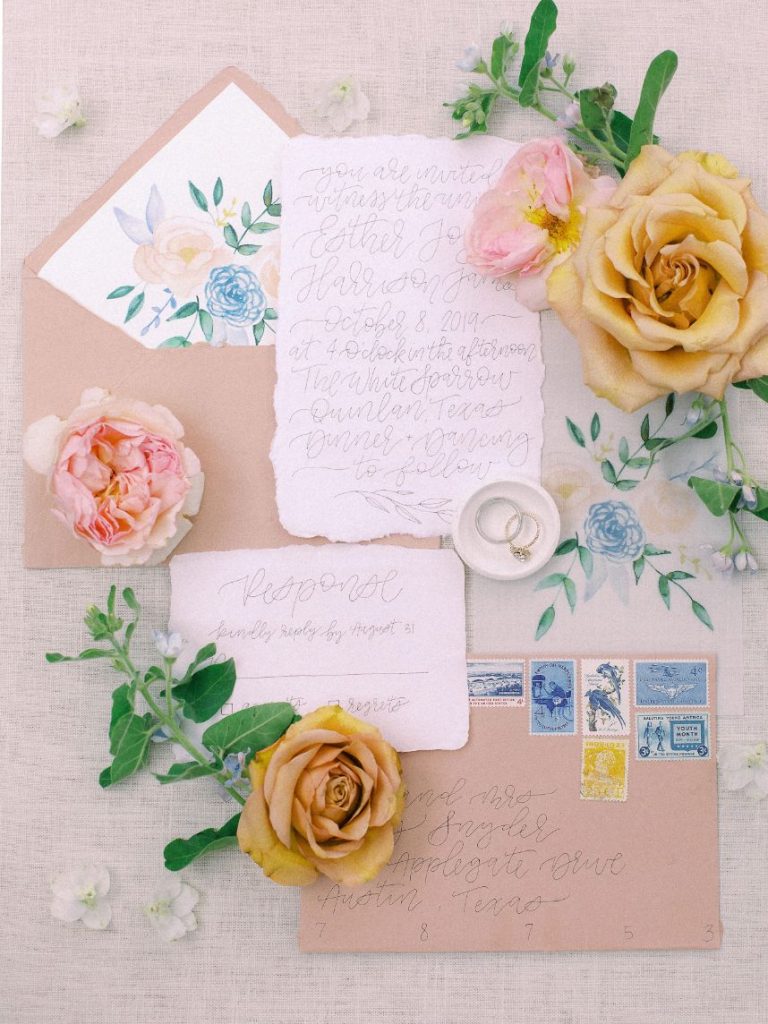 you are invited
witness the
Esther
Harrison
October 8 2019
at 4 o'clock in the afternoon
The White Sparrow
Quinlan, Texas
Dinner + Dancing
to follow
Response
kindly reply by August 31
regrets
4¢
SALUTING YOUNG AMERICA
YOUTH
MONTH
3¢
and Mrs
Snyder
Applegate Drive
Austin, Texas
7 8 7 5 3